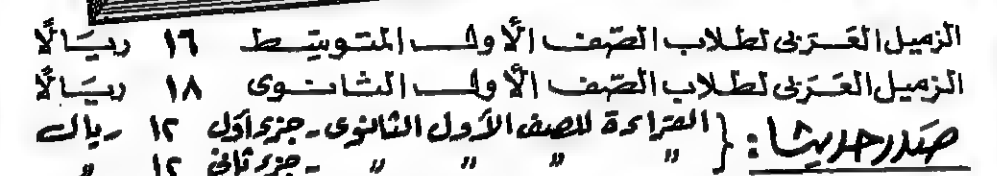 الزميل العَربى لطلاب الصّف الأولـــ المتوسِّط ١٦ ريَالًا
الزميل العَربى لطلاب الصّف الأولـــ الثانـوى ١٨ ريَالًا
صَدر حديثا : { القراءة للصف الأول الثانوى - جزء أول ١٢ ريال
" " " " - جزء ثانى ١٢ "